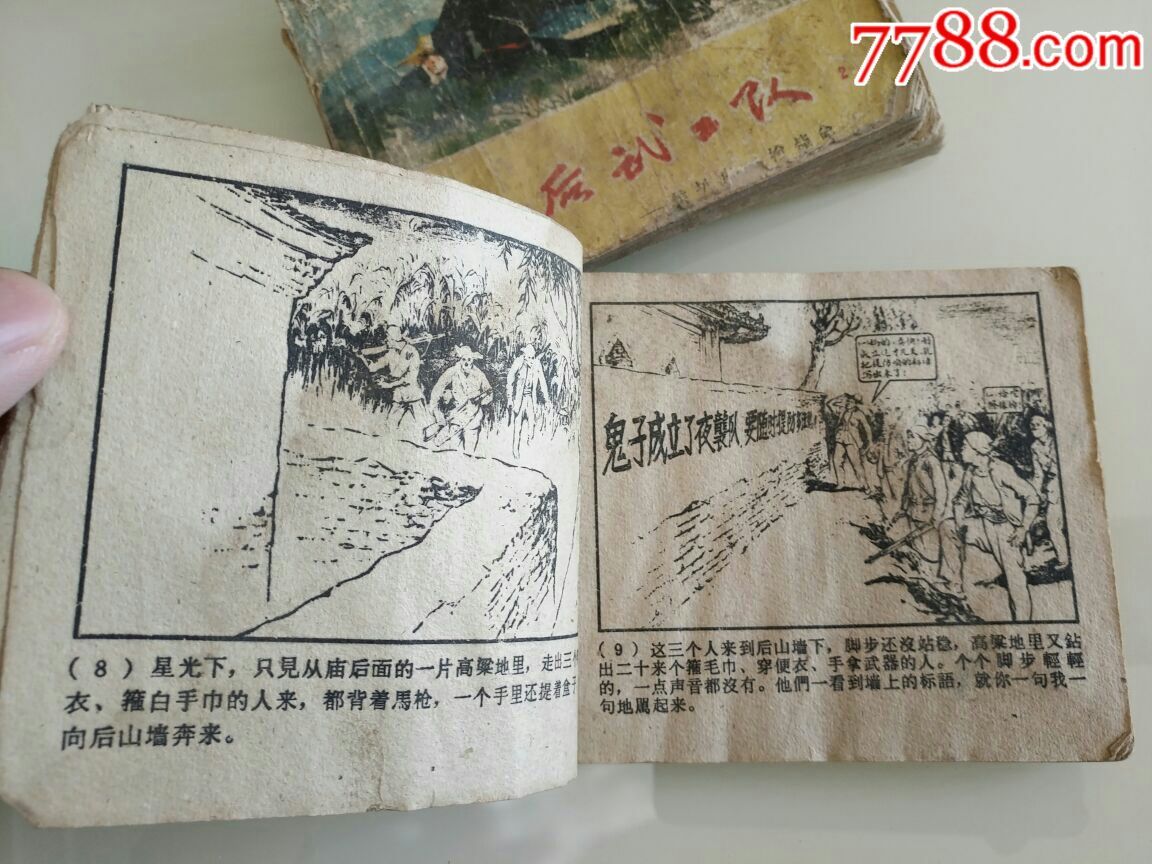 7788.com
后武工队
2
鬼子成立了夜襲队 要随时提防
(8) 星光下，只見从庙后面的一片高粱地里，走出三
衣、箍白手巾的人来，都背着馬枪，一个手里还提着盒子
向后山墙奔来。
(9) 这三个人来到后山墙下，脚步还沒站稳，高粱地里又鉆
出二十来个箍毛巾、穿便衣、手拿武器的人。个个脚步輕輕
的，一点声音都沒有。他們一看到墙上的标語，就你一句我一
句地駡起来。